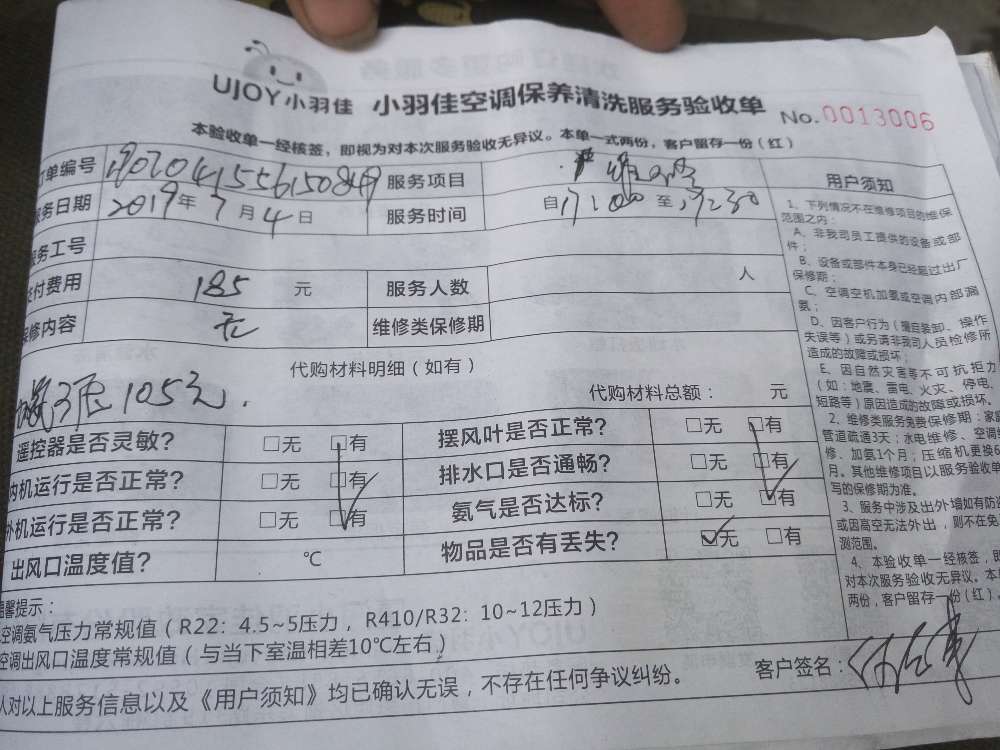 UJOY小羽佳 小羽佳空调保养清洗服务验收单 No.0013006
本验收单一经核签，即视为对本次服务验收无异议。本单一式两份，客户留存一份（红）
订单编号 服务项目
务日期 2019年7月4日 服务时间 自17:00至17:30
务工号
付费用 185 元 服务人数 人
保修内容 无 维修类保修期
代购材料明细（如有）
3 105元. 代购材料总额： 元
遥控器是否灵敏？ □无 □有 摆风叶是否正常？ □无 □有
内机运行是否正常？ □无 □有 排水口是否通畅？ □无 □有
外机运行是否正常？ □无 □有 氨气是否达标？ □无 □有
出风口温度值？ ℃ 物品是否有丢失？ ☑无 □有
温馨提示：
空调氨气压力常规值（R22：4.5~5压力，R410/R32：10~12压力）
空调出风口温度常规值（与当下室温相差10℃左右）
人对以上服务信息以及《用户须知》均已确认无误，不存在任何争议纠纷。 客户签名：
用户须知
1、下列情况不在维修项目的维保
范围之内：
A、非我司员工提供的设备或部
件；
B、设备或部件本身已经超过出厂
保修期；
C、空调空机加氨或空调内部漏
氨；
D、因客户行为（擅自装卸、操作
失误等）或另请非我司人员检修所
造成的故障或损坏；
E、因自然灾害等不可抗拒力
（如：地震、雷电、火灾、停电、
短路等）原因造成的故障或损坏。
2、维修类服务免费保修期：家庭
管道疏通3天；水电维修、空调维
修、加氨1个月；压缩机更换6
月。其他维修项目以服务验收单
写的保修期为准。
3、服务中涉及出外墙如有防盗
或因高空无法外出，则不在免
测范围。
4、本验收单一经核签，即
对本次服务验收无异议。本单
两份，客户留存一份（红）。